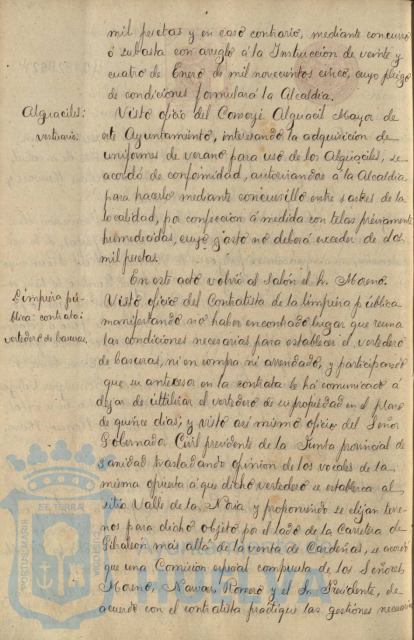 mil pesetas y en caso contrario, mediante concurso
ó subasta con arreglo á la Instruccion de veinte y
cuatro de Enero de mil novecientos cinco, cuyo pliego
de condiciones formulará la Alcaldia.
Alguaciles:
vestuario.
Visto oficio del Conserje Alguacil Mayor de
este Ayuntamiento, interesando la adquisicion de
uniformes de verano para uso de los Alguaciles, se
acordó de conformidad, autorizando á la Alcaldia
para hacerlo mediante concursillo entre sastres de la
localidad, por confeccion á medida con telas préviamente
humedecidas, cuyo gasto no deberá exceder de dos
mil pesetas.
En este acto volvió al Salón el Sr. Moreno.
Limpieza pú-
blica: contrato:
vertedero de basuras.
Visto oficio del Contratista de la limpieza pública
manifestando no haber encontrado lugar que reuna
las condiciones necesarias para establecer el vertedero
de basuras, ni en compra ni arrendado, y participando
que su antecesor en la contrata le há comunicado á
dejar de utilizar el vertedero de su propiedad en el plazo
de quince dias; y visto asi mismo oficio del Señor
Gobernador Civil presidente de la Junta provincial de
Sanidad trasladando opinion de los vocales de la
misma opuesta á que dicho vertedero se establezca al
sitio Valle de la Noria y proponiendo se elijan terre-
nos para dicho objeto por el lado de la Carretera de
Gibraleon más allá de la venta de Cardeñas, se acordó
que una Comision especial compuesta de los Señores
Moreno, Navas, Romero y el Sr. Presidente, de
acuerdo con el contratista practique las gestiones necesarias
PORTUS MARIS
ET TERRAE
CUSTODIA
HUELVA